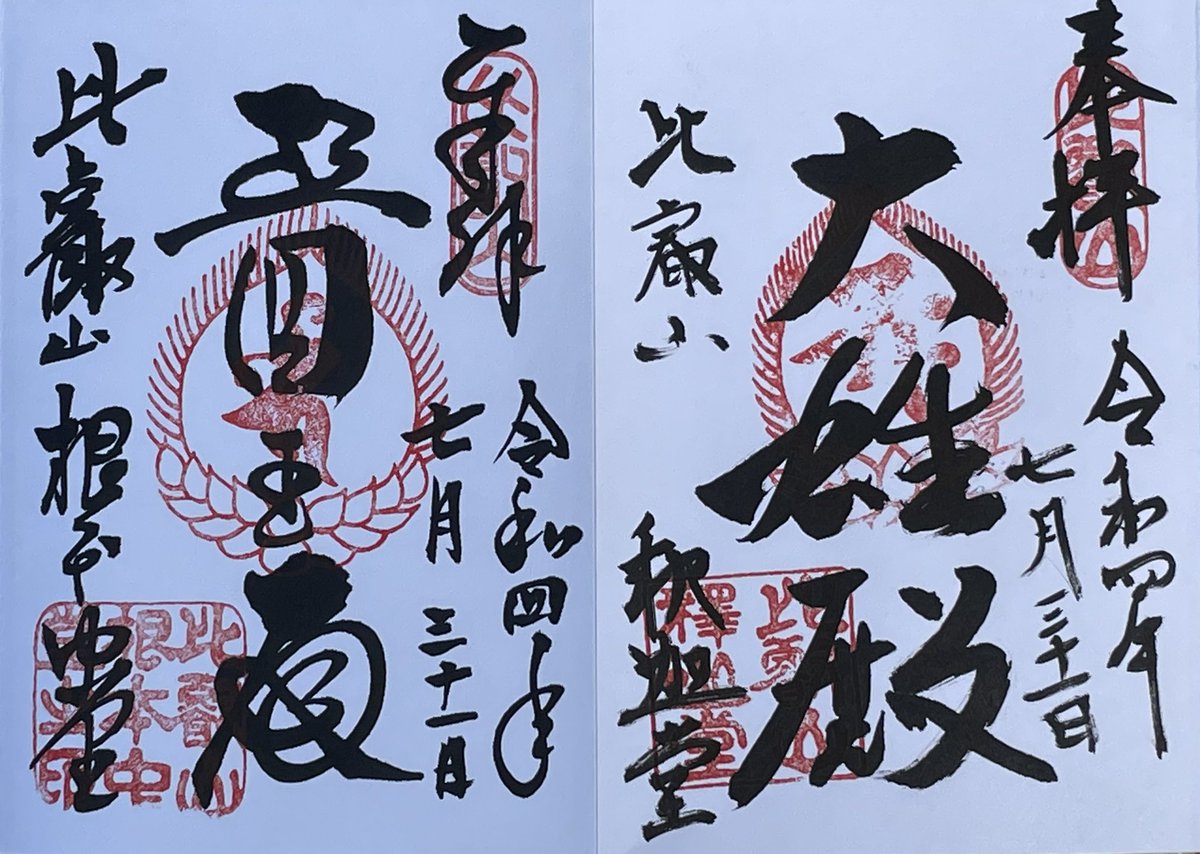 奉拝
令和四年
七月三十一日
大雄殿
比叡山
釈迦堂
比叡山
釋迦堂
奉拝
令和四年
七月三十一日
醫王殿
比叡山 根本中堂
比叡山
根本中
堂之印